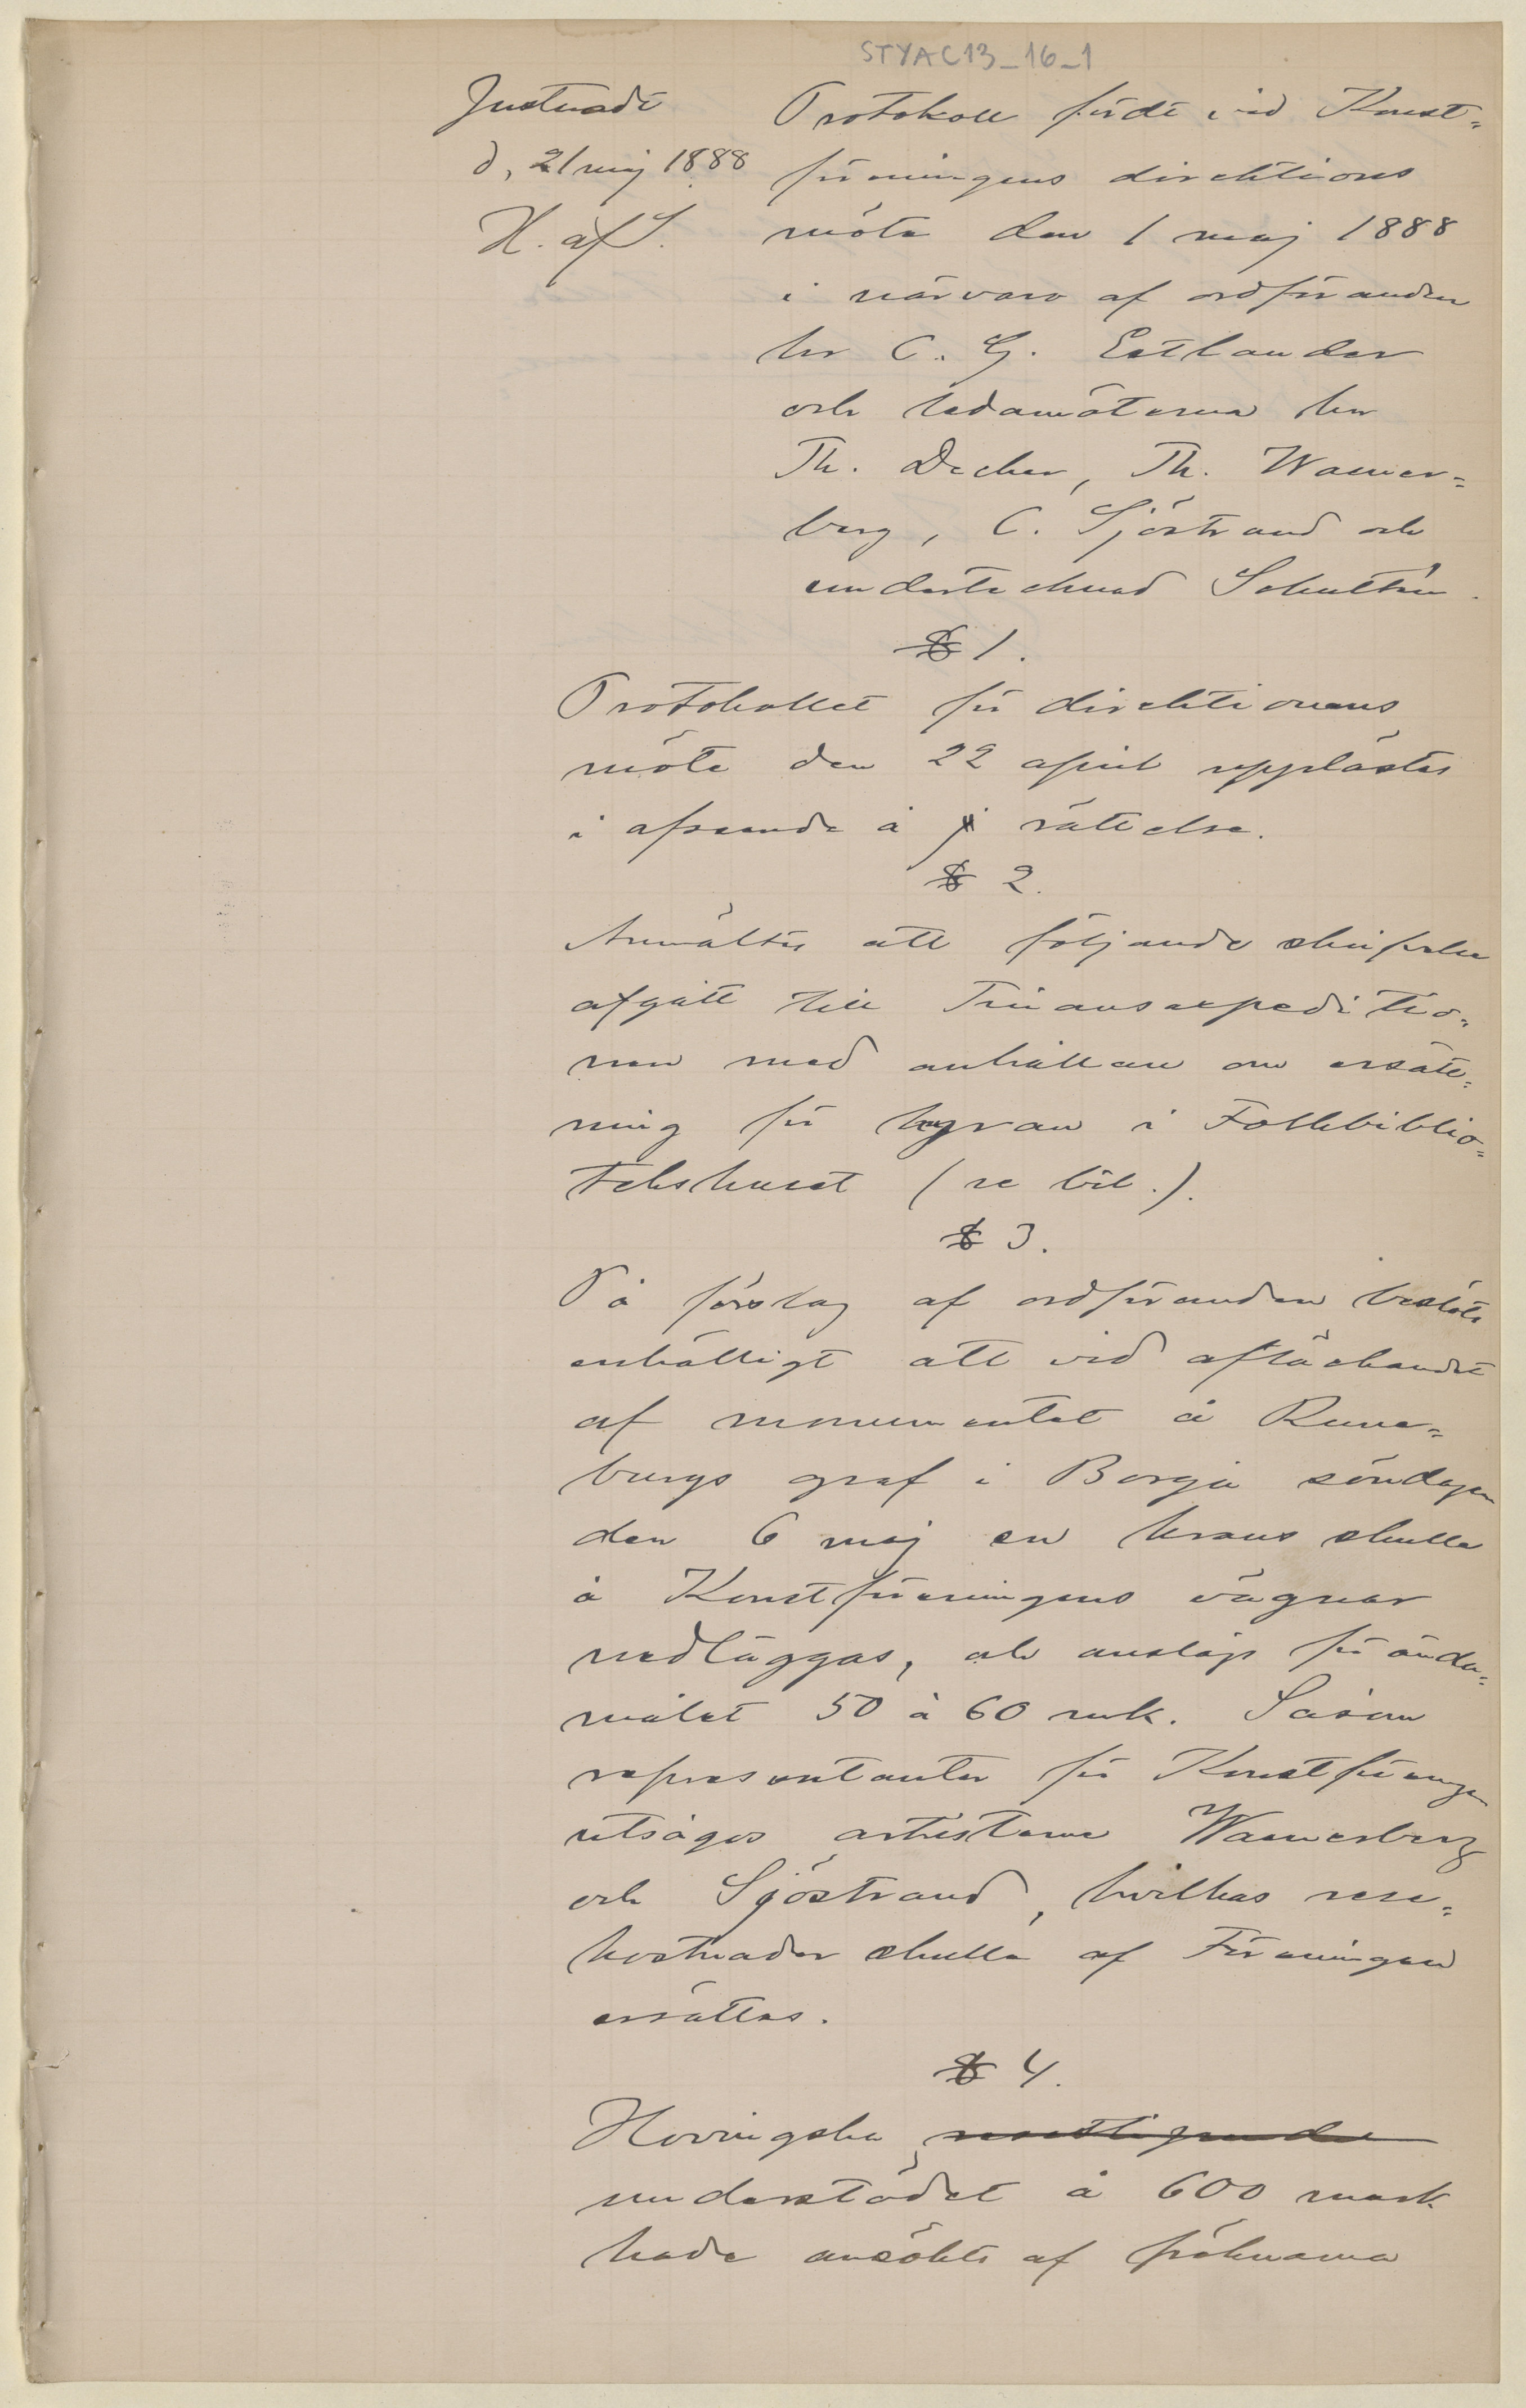 STYAC13_16_1
Justeradt
d, 21 maj 1888
H. af S.
Protokoll fördt vid Konst=
föreningens direktions
möte den 1 maj 1888
i närvaro af ordföranden
hr C. G. Estlander
och ledamöterna hrr
Th. Decker, Th. Waener=
berg, C. Sjöstrand och
undertecknad Schultén.
§ 1.
Protokollet för direktionens
möte den 22 april upplästes
i afseende å rättelse.
§ 2.
Anmältes att följande skrifvelse
afgått till Finansexpeditio=
nen med anhållan om ersätt=
ning för hyran i Folkbiblio=
tekshuset (se bil.).
§ 3.
På förslag af ordföranden beslöts
enhälligt att vid aftäckandet
af monumentet å Rune=
bergs graf i Borgå söndagen
den 6 maj en krans skulle
å Konstföreningens vägnar
nedläggas, och anslogs för ända=
målet 50 à 60 mk. Såsom
representanter för Konstföreningen
utsågos artisterne Waenerberg
och Sjöstrand, hvilkas rese=
kostnader skulle af Föreningen
ersättas.
§ 4.
Hovingska
understödet å 600 mark
hade ansökts af fröknarna